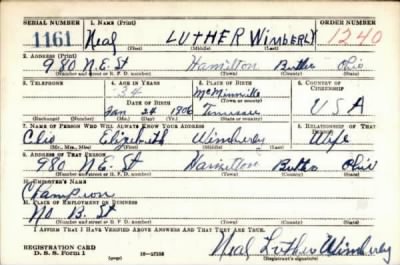 SERIAL NUMBER 1. NAME (Print) ORDER NUMBER
1161 Neal LUTHER Wimberly 1240
(First) (Middle) (Last)
2. ADDRESS (Print)
980 N.E. St Hamilton Butler Ohio
(Number and street or R. F. D. number) (Town) (County) (State)
3. TELEPHONE 4. AGE IN YEARS 5. PLACE OF BIRTH 6. COUNTRY OF CITIZENSHIP
34 McMinnville
DATE OF BIRTH (Town or county)
Jan 24 1906 Tennessee USA
(Exchange) (Number) (Mo.) (Day) (Yr.) (State or country)
7. NAME OF PERSON WHO WILL ALWAYS KNOW YOUR ADDRESS 8. RELATIONSHIP OF THAT PERSON
Elizabeth Wimberly Wife
(Mr., Mrs., Miss) (First) (Middle) (Last)
9. ADDRESS OF THAT PERSON
980 N.E. St Hamilton Butler Ohio
(Number and street or R. F. D. number) (Town) (County) (State)
10. EMPLOYER'S NAME
Champion
11. PLACE OF EMPLOYMENT OR BUSINESS
No. B. St
(Number and street or R. F. D. number) (Town) (County) (State)
I AFFIRM THAT I HAVE VERIFIED ABOVE ANSWERS AND THAT THEY ARE TRUE.
REGISTRATION CARD Neal Luther Wimberly
D. S. S. Form 1 (over) (Registrant's signature)